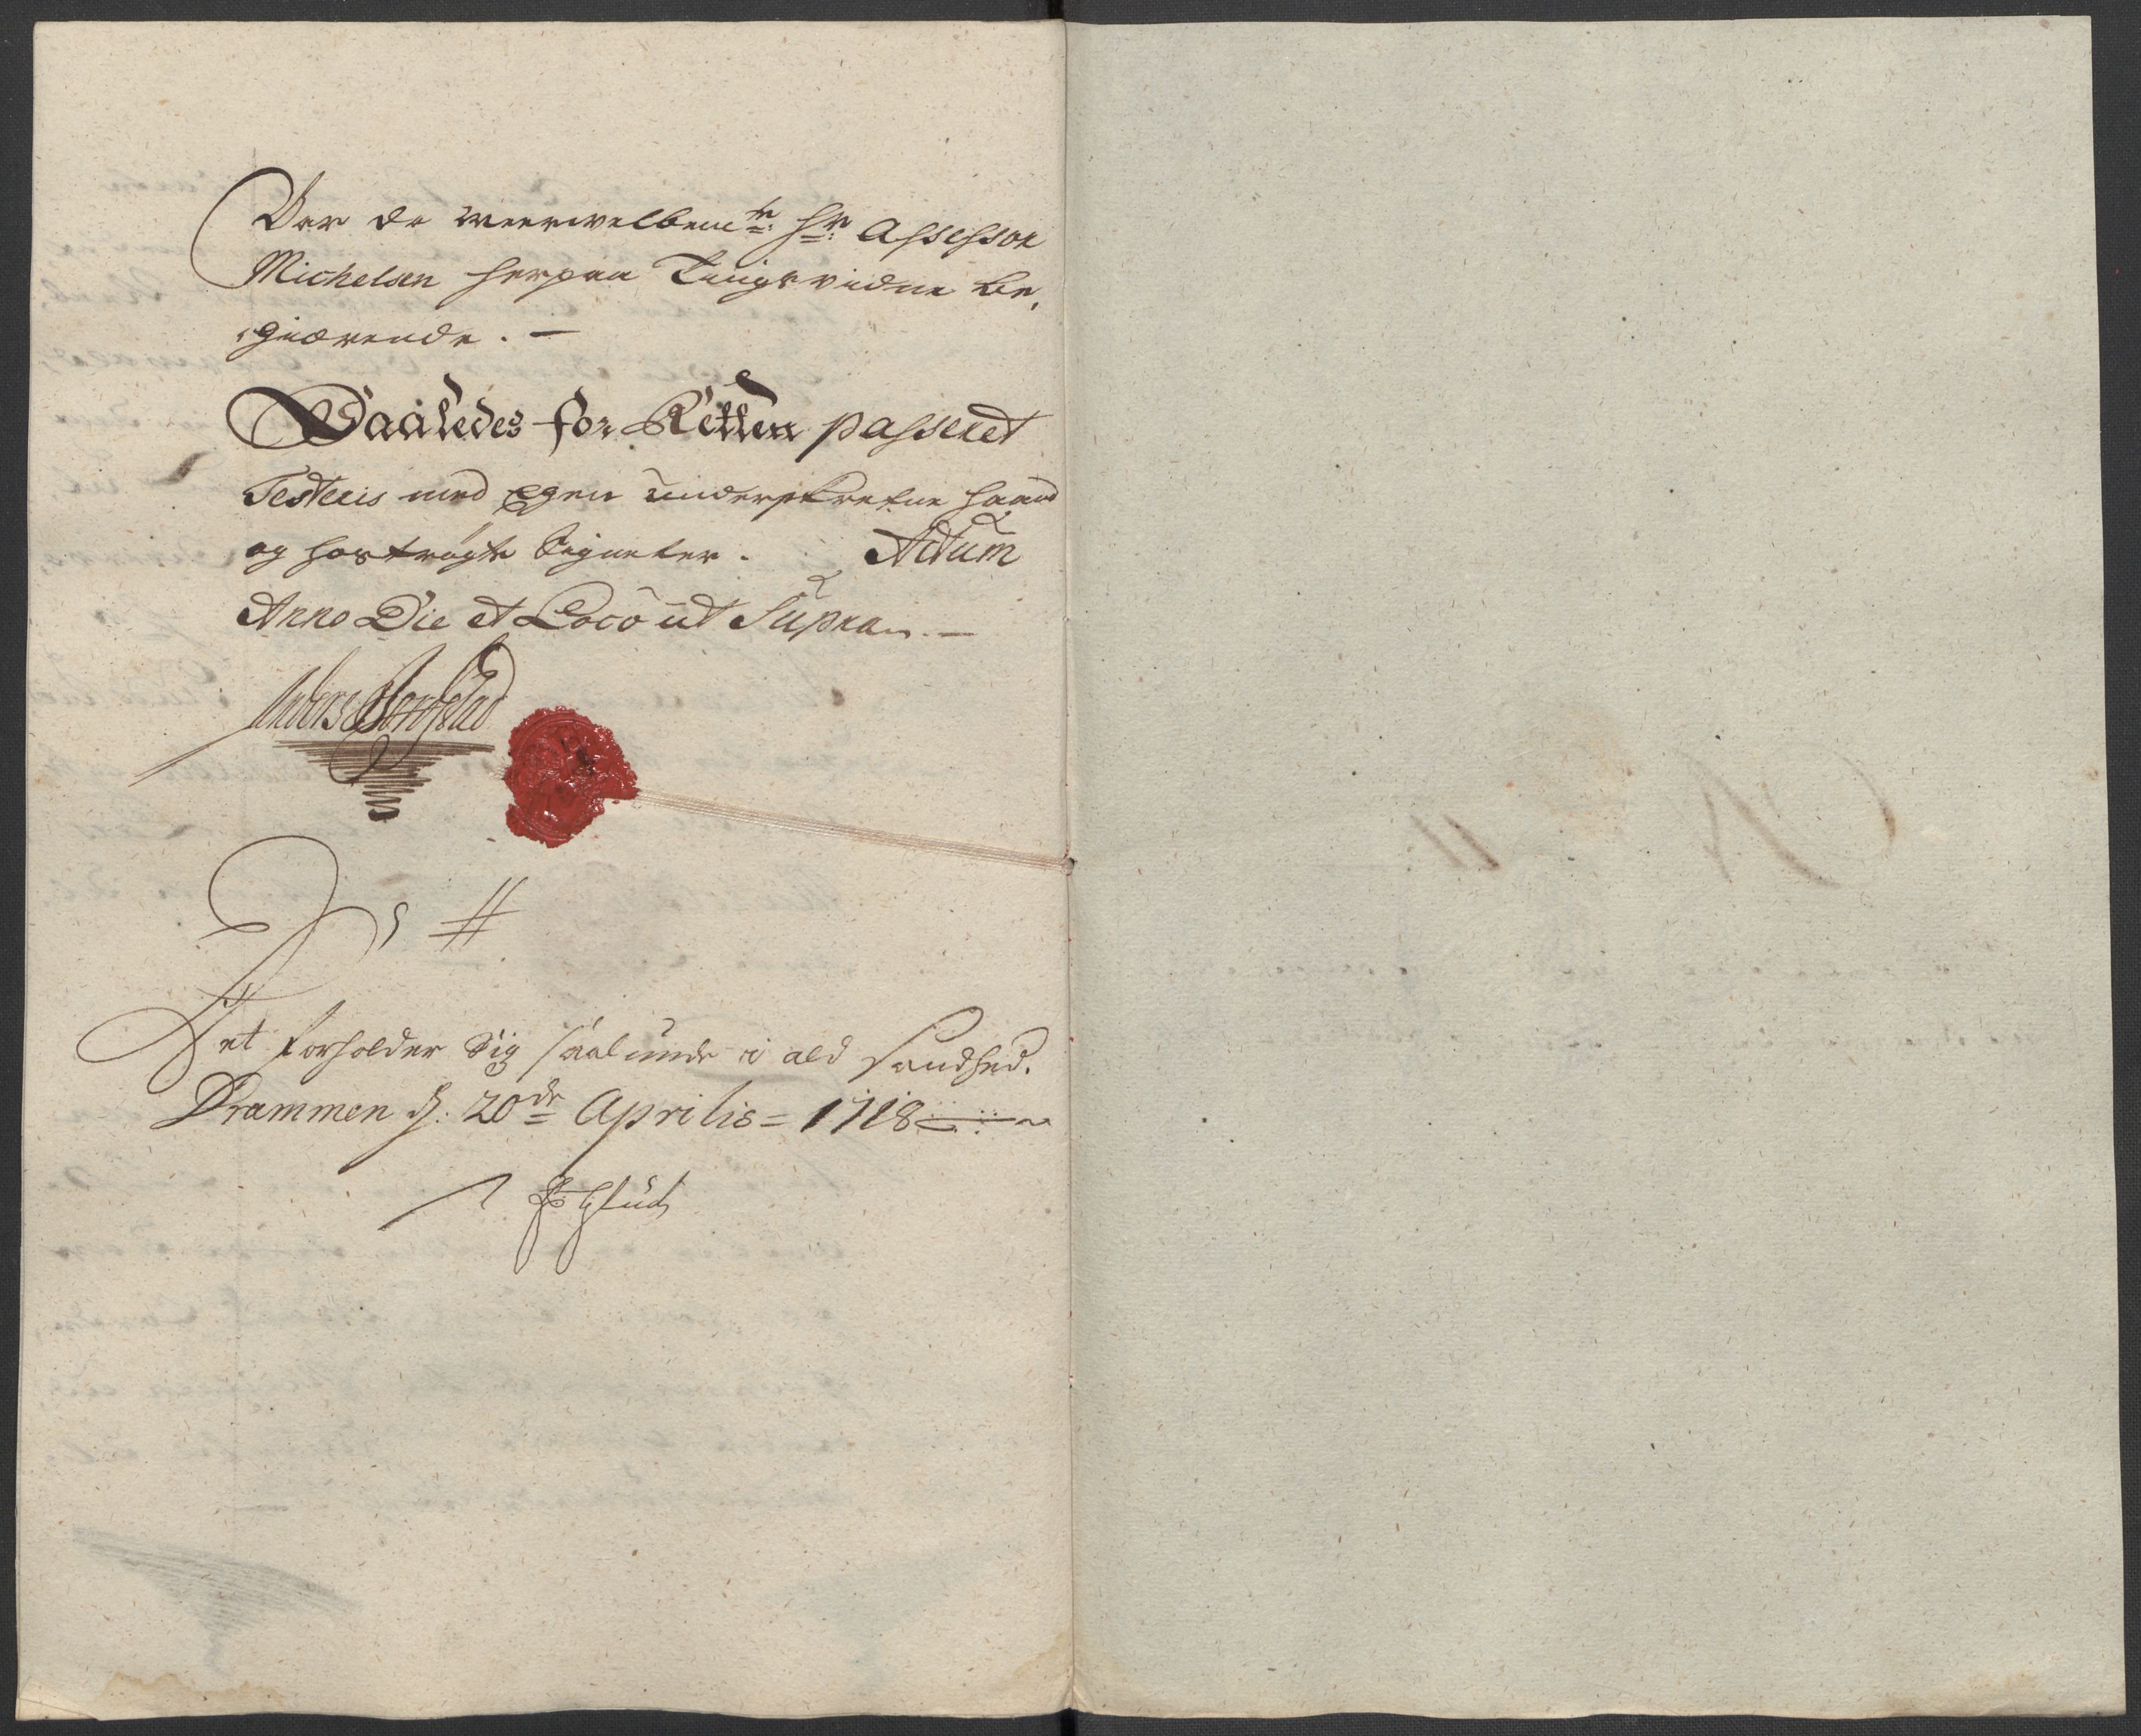 Var da meervelbemte: Hr: Assessor
Michelsen herpaa Tingsvidne be,
giærende. —
Saaledes for Retten passeret
Testeris med Egen underskrefne haand
og hostrygte Signeter. Actum
Anno Die et Loco ut Supra. —
Anders
Det forholder Sig saalunde i ald Sandhed.
Drammen d: 20de Aprilis = 1718